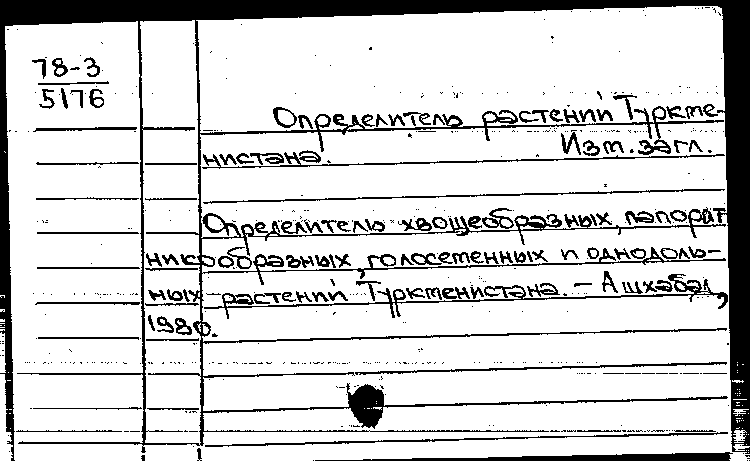 78-3
5176
Определитель растений Туркме-
нистана. Изм. загл.
Определитель хвощеобразных, папорат
никообразных, голосеменных и однодоль-
ных растений Туркменистана. - Ашхабад,
1980.